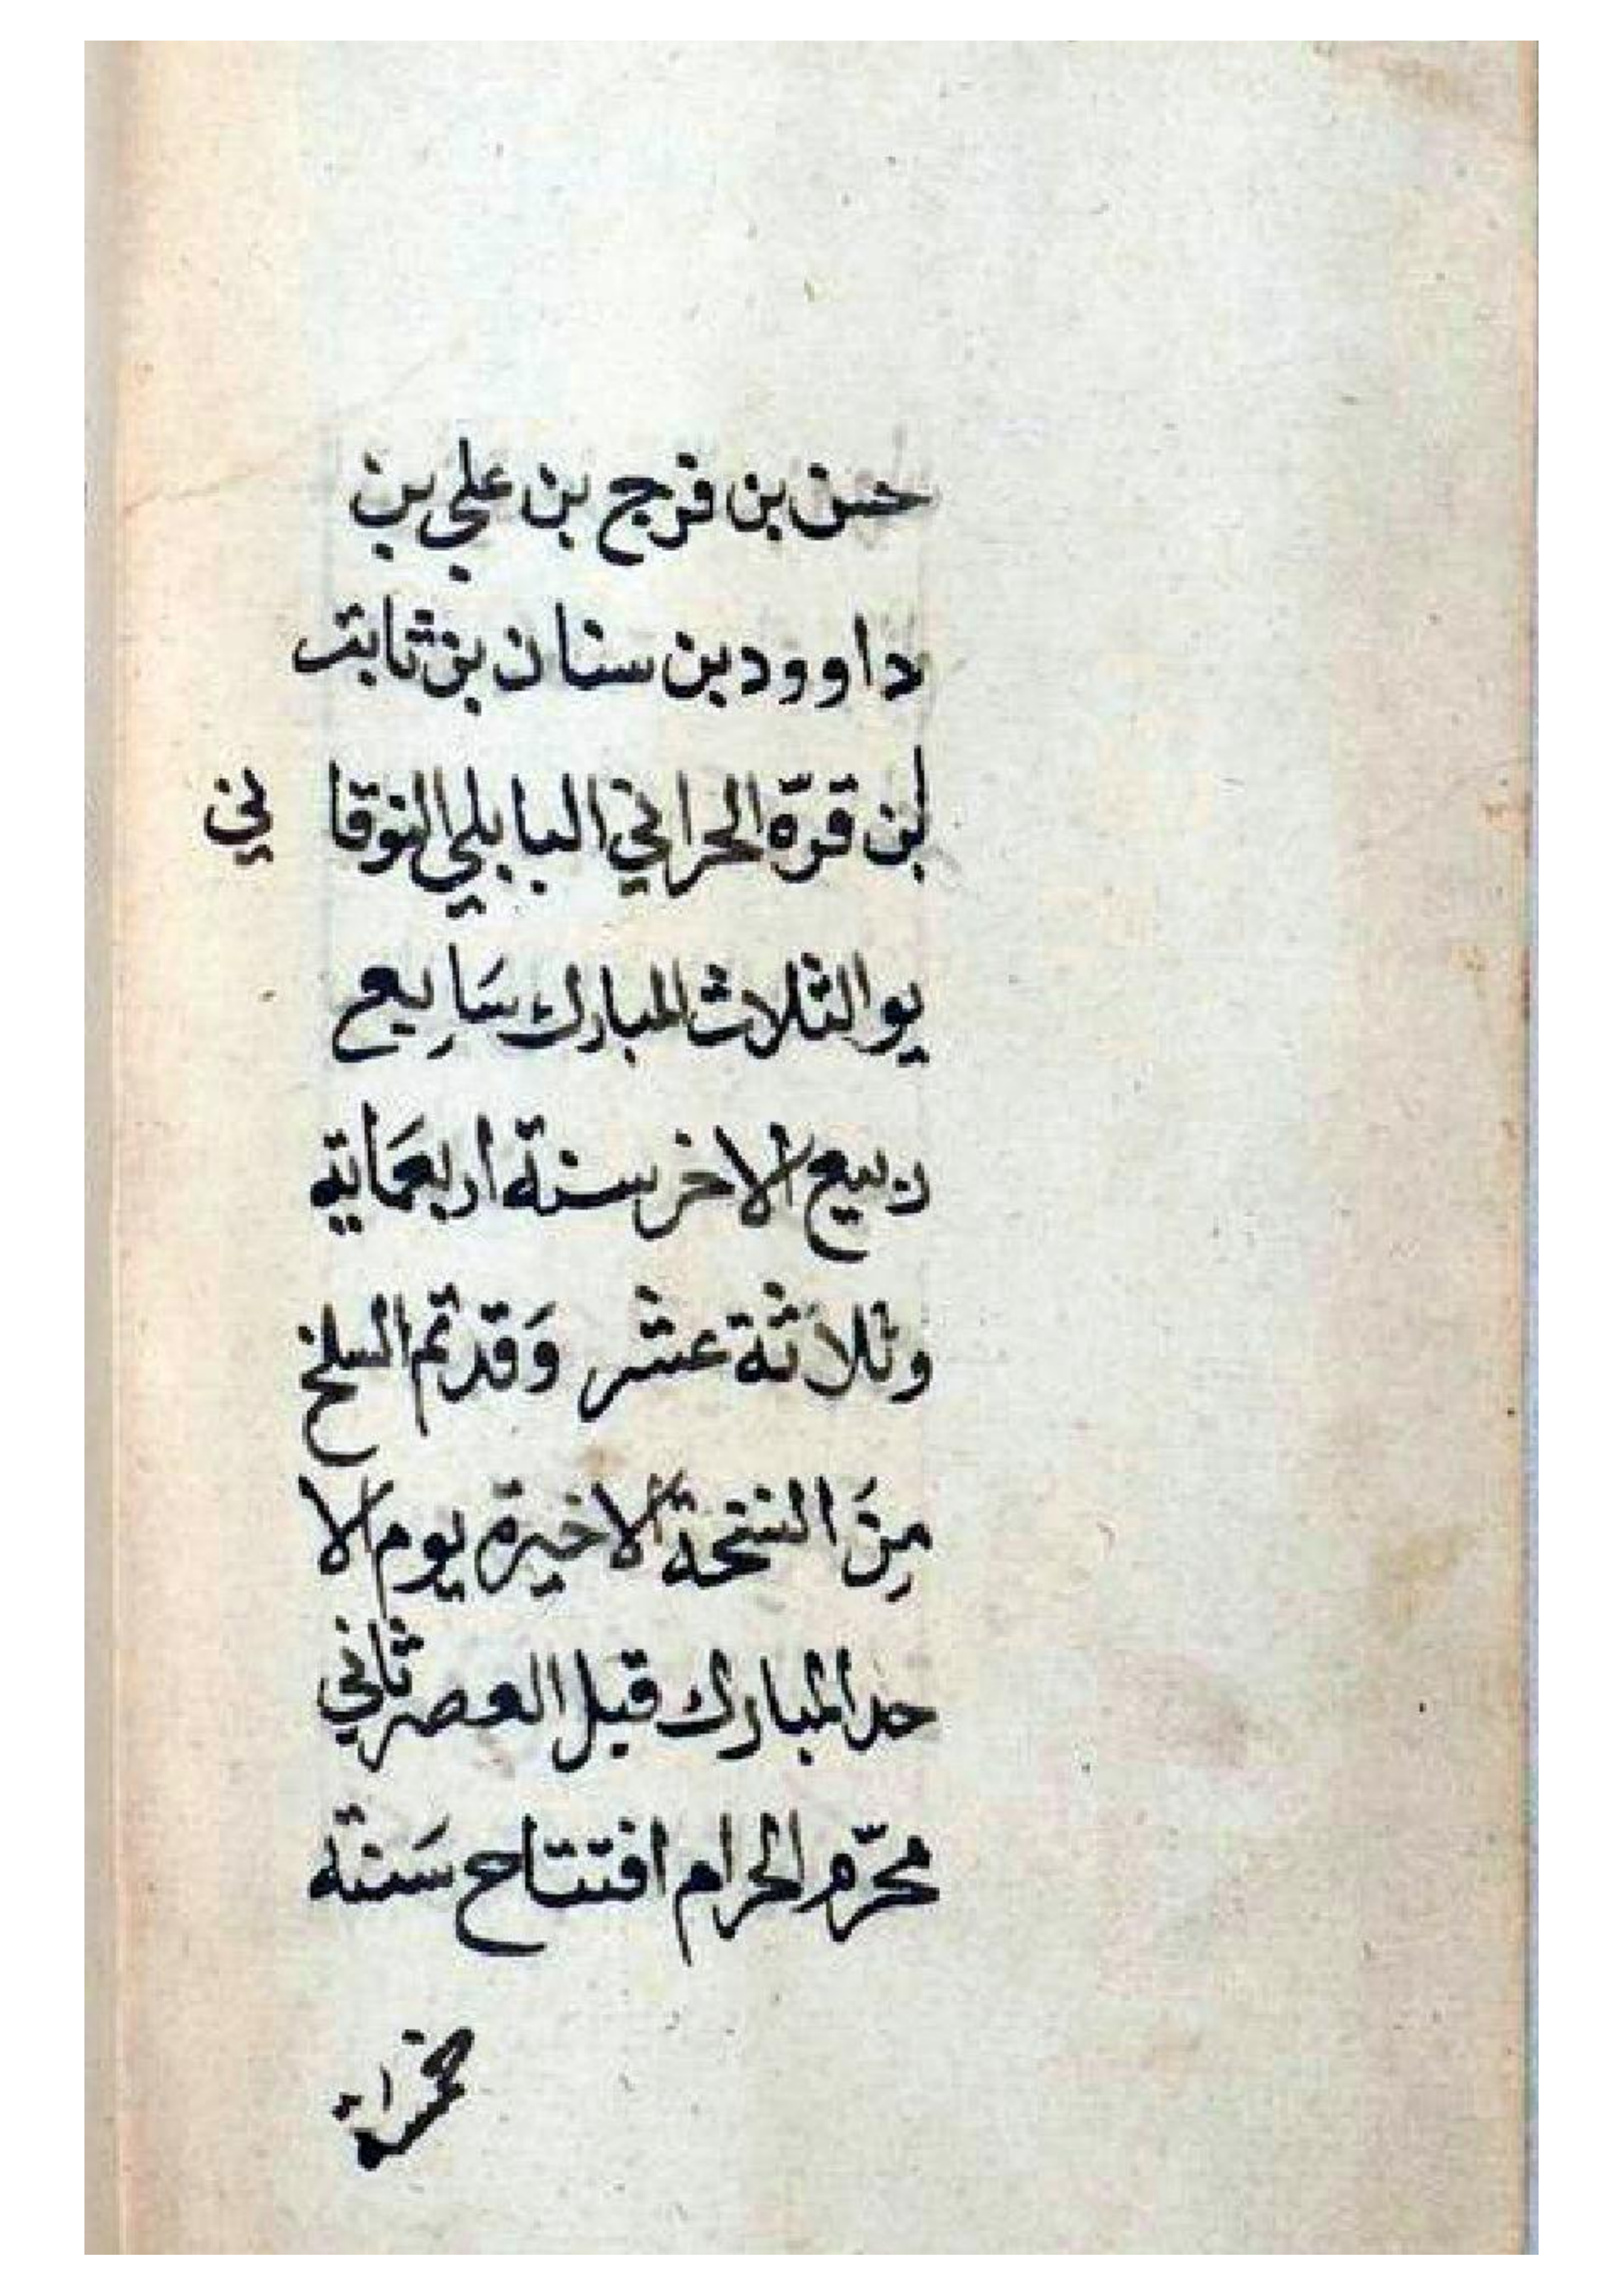 حسن بن فرج بن علي بن
داوود بن سنان بن ثابت
بن قرّة الحراني البابلي النوقا ني
يو الثلاث المبارك سَابِع
ربيع الاخر سنة اربعمَاية
وثلاثة عشر وَقد تم السلخ
مِنَ النسخة الاخيرة يوم الا
حد المبارك قبل العصر ثاني
محرّم الحرام افتتاح سَنة